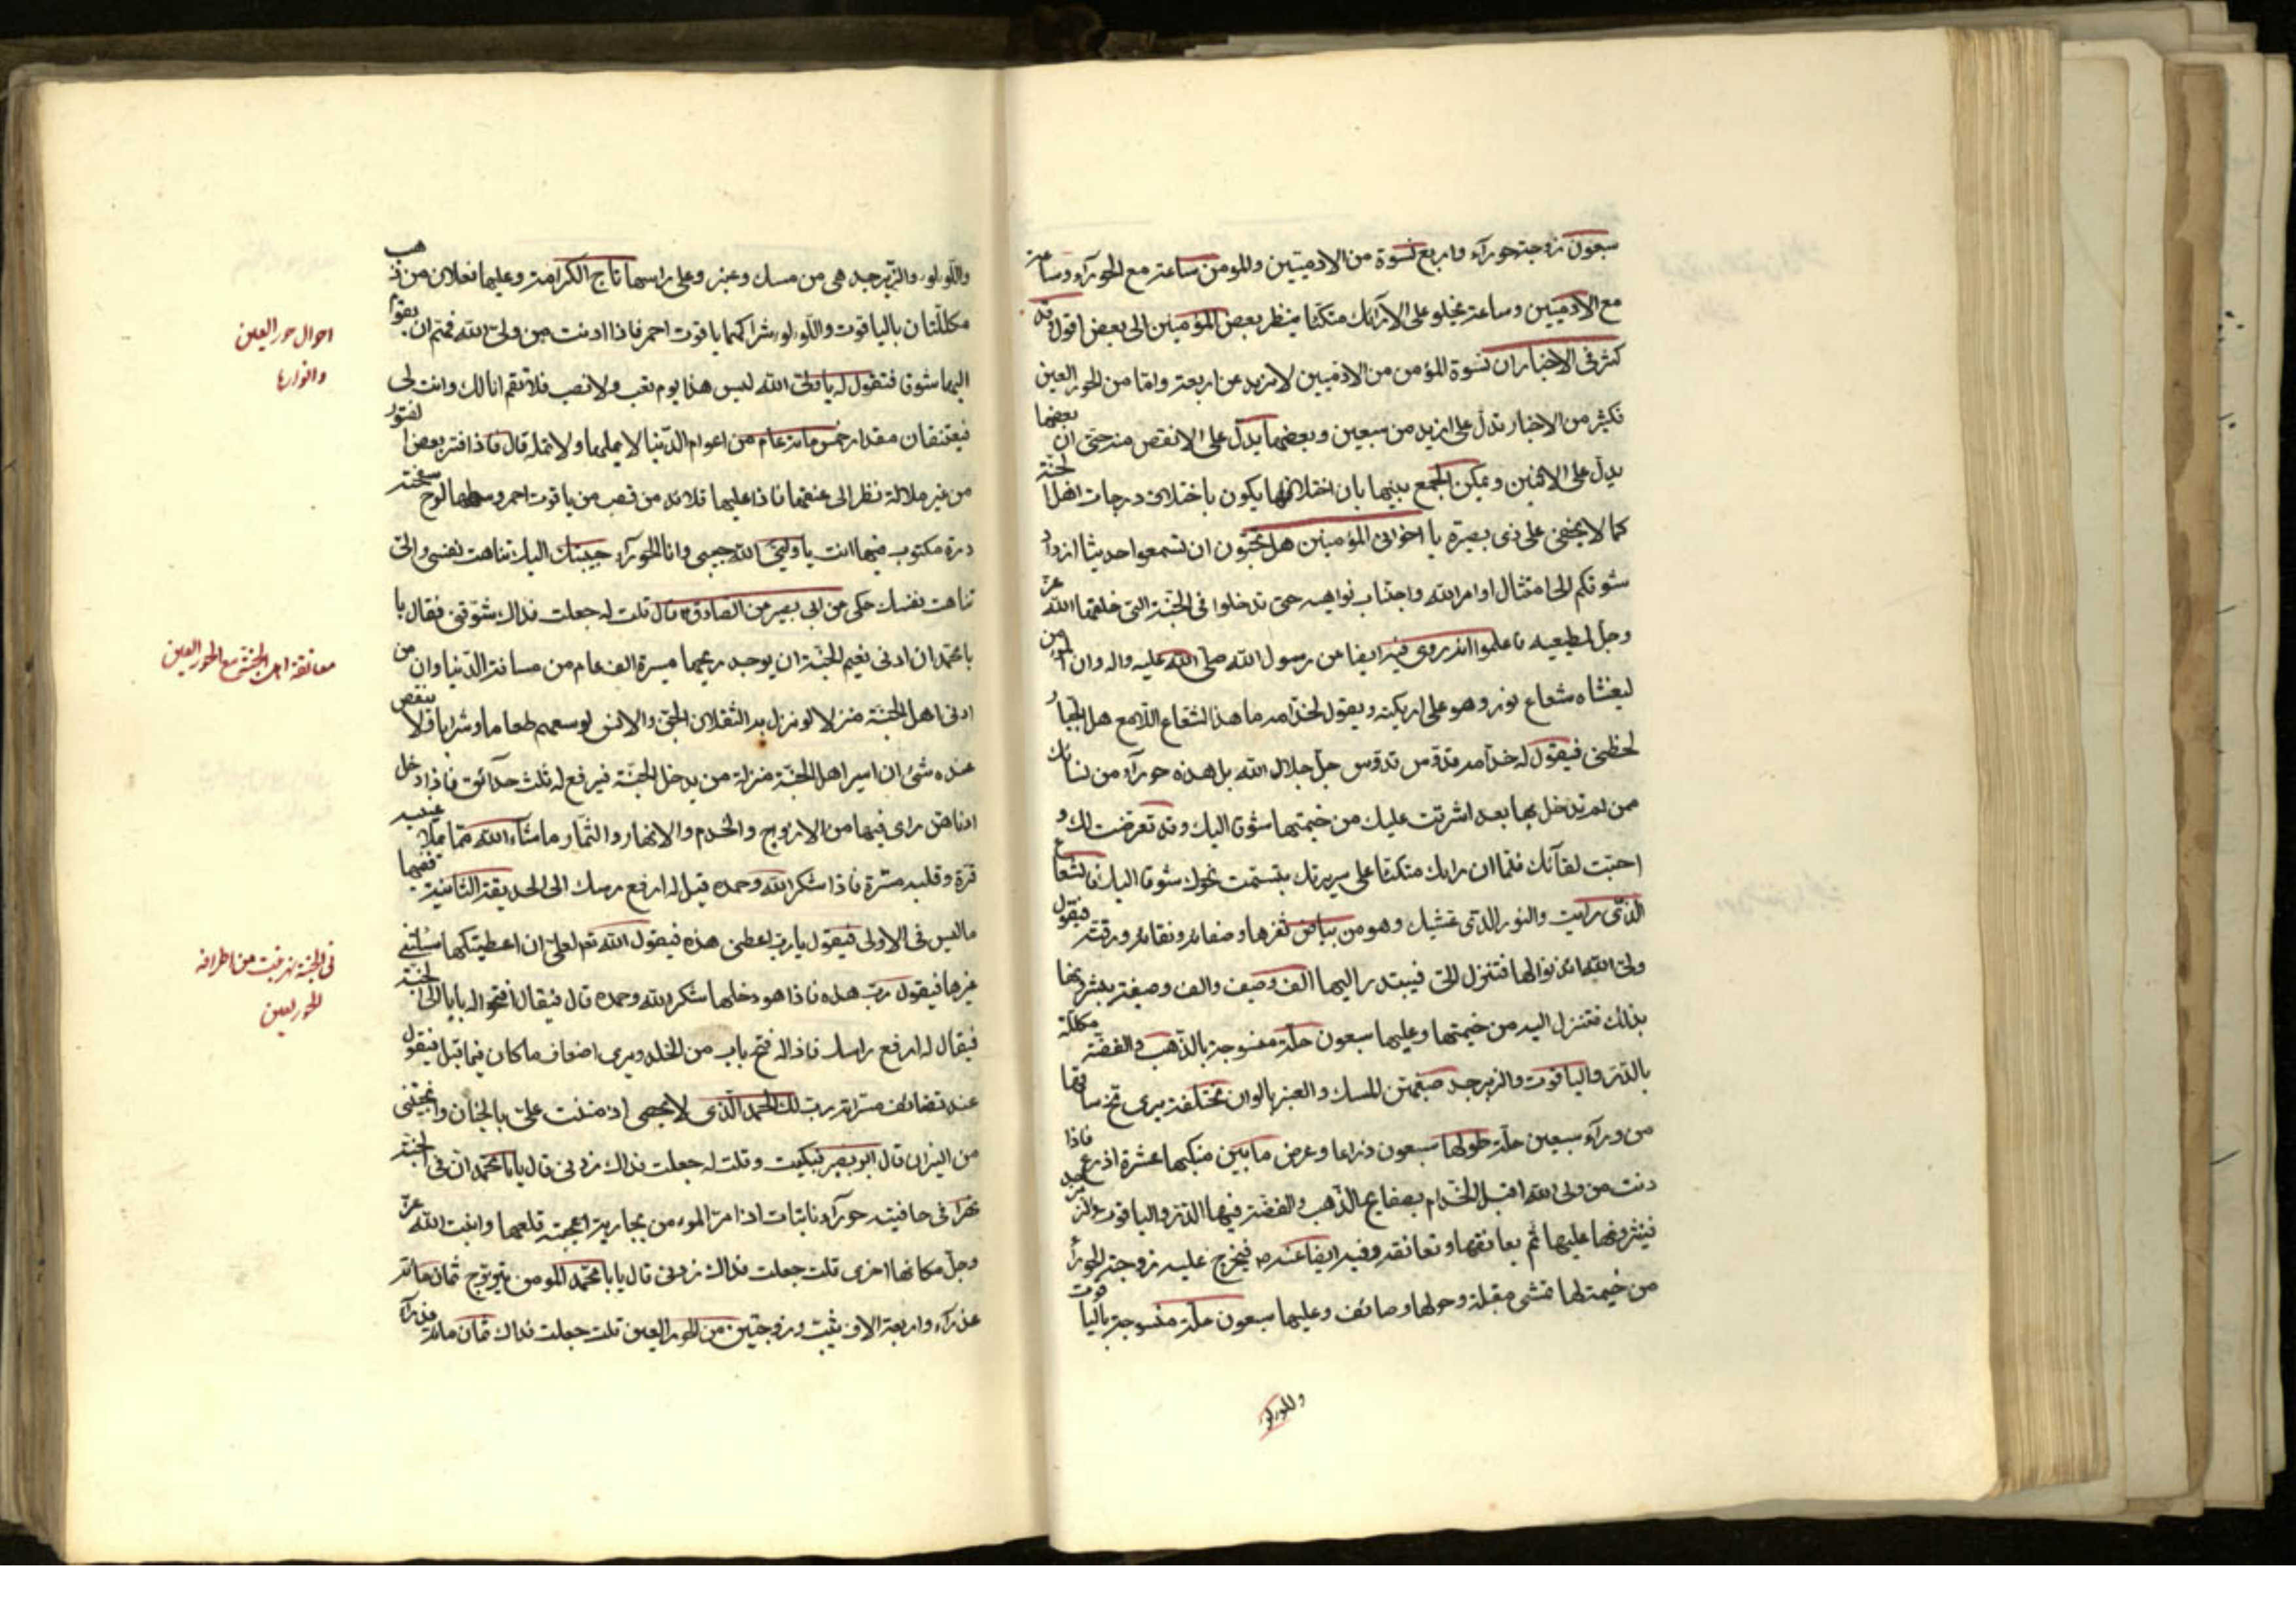 سبعون زوجة حورآء واربع نسوة من الادميتين والمومن ساعة مع الحورآء وساعة
مع الادميتين وساعة يخلو على الارآئك متكئا ينظر بعض المؤمنين الى بعض اقول قد
كثر فى الاخبار ان نسوة المؤمن من الادميين لا تزيد عن اربعة واما من الحور العين
فكثير من الاخبار تدل على ازيد من سبعين وبعضها يدل على الانقص منه حتى ان بعضها
يدل على الاثنين ويمكن الجمع بينهما بان اختلافها يكون باختلاف درجات اهل الجنة
كما لا يخفى على ذى بصيرة يا اخوانى المؤمنين هل تحبون ان تسمعوا حديثا ازداد
شوقكم الى امتثال اوامر الله واجتناب نواهيه حتى تدخلوا فى الجنة التى خلقها الله عز
وجل لمطيعيه فاعلموا انه روى فيه ايضا عن رسول الله صلى الله عليه واله وان المومن
ليغشاه شعاع نور وهو على اريكته ويقول لخدامه ما هذا الشعاع اللامع لعل الجبار
لحظنى فيقول له خدامه قدوس قدوس جل جلال الله بل هذه حورآء من نسائك
ممن لم تدخل بها بعد اشرقت عليك من خيمتها شوقا اليك وقد تعرضت لك و
احبت لقآئك فلما ان راتك متكئا على سريرك تبسمت نحوك شوقا اليك فالشعاع
الذى رايت والنور الذى غشيك وهو من بياض ثغرها وصفائه ونقائه ورقته فيقول
ولى الله ائذنوا لها فتنزل الى فيبتدر اليها الف وصيف والف وصيفة يبشرونها
بذلك فتنزل اليه من خيمتها وعليها سبعون حلة منسوجة بالذهب والفضة مكللة
بالدر والياقوت والزبرجد صبغهن المسك والعنبر بالوان مختلفة يرى مخ ساقها
من ورآء سبعين حلة طولها سبعون ذراعا وعرض ما بين منكبيها عشرة اذرع فاذا
دنت من ولى الله اقبل الخدام بصفايح الذهب والفضة فيها الدر والياقوت والزبرجد
فينثرونها عليها ثم يعانقها وتعانقه وفيه ايضا عنه ص فيخرج عليه زوجته الحورآء
من خيمة لها تمشى مقبلة وحولها وصائف وعليها سبعون حلة منسوجة بالياقوت
واللولو
واللولو والزبرجد هى من مسك وعنبر وعلى راسها تاج الكرامة وعليها نعلان من ذهب
مكللتان بالياقوت واللولو شراكهما ياقوت احمر فاذا ادنت من ولى الله فهم ان يقوم
اليها شوقا فتقول له يا ولى الله ليس هذا يوم تعب ولا نصب فلا تقم انا لك وانت لى
فيعتنقان مقدار خمس مائة عام من اعوام الدنيا لا يملها ولا تمله قال فاذا فتر بعض الفتور
من غير ملالة نظر الى عنقها فاذا عليها قلائد من قصب من ياقوت احمر وسطها لوح صفحته
درة مكتوب فيها انت يا ولى الله حبيبى وانا الحورآء حبيبتك اليك تناهت نفسى والى
تناهت نفسك حكى عن ابى بصير عن الصادق ع قال قلت له جعلت فداك شوقنى فقال يا
با محمد ان ادنى نعيم الجنة ان يوجد ريحها مسيرة الف عام من مسافة الدنيا وان من
ادنى اهل الجنة منزلا لو نزل به الثقلان الجن والانس لوسعهم طعاما وشرابا ولا ينقص
عنده شئ ان ايسر اهل الجنة منزلة من يدخل الجنة فيرفع له ثلث حدآئق فاذا دخل
ادناهن راى فيها من الازواج والخدم والانهار والثمار ماشآء الله مما يملأ عينيه
قرة وقلبه مسرة فاذا شكر الله وحمده قيل له ارفع رسك الى الحديقة الثانية ففيها
ما ليس فى الاولى فيقول يا رب اعطنى هذه فيقول الله تعم لعلى ان اعطيتكها سئلتنى
غيرها فيقول رب هذه فاذا هو دخلها شكر الله وحمده قال فيقال افتحوا له بابا الى الجنة
فيقال له ارفع راسك فاذا له فتح باب من الخلد ويرى اضعاف ما كان فيما قبل فيقول
عند تضاعف مسراته رب لك الحمد الذى لا يحصى اذ مننت على بالجنان وانجيتنى
من النيران قال ابو بصير فبكيت وقلت له جعلت فداك زدنى قال يا با محمد ان فى الجنة
نهرا فى حافيته حورآء نابتات اذا مر المومن بجارية اعجبته قلعها وانبت الله عز
وجل مكانها اخرى قلت جعلت فداك زدنى قال يا با محمد المومن يزوج ثمان مائة
عذرآء واربعة الاف ثيب وزوجتين من الحور العين قلت جعلت فداك ثمان مائة عذرآء
احوال حور العين
وانوارها
معانقة اهل الجنة مع الحور العين
فى الجنة نهر نبت من اطرافه
الحور العين